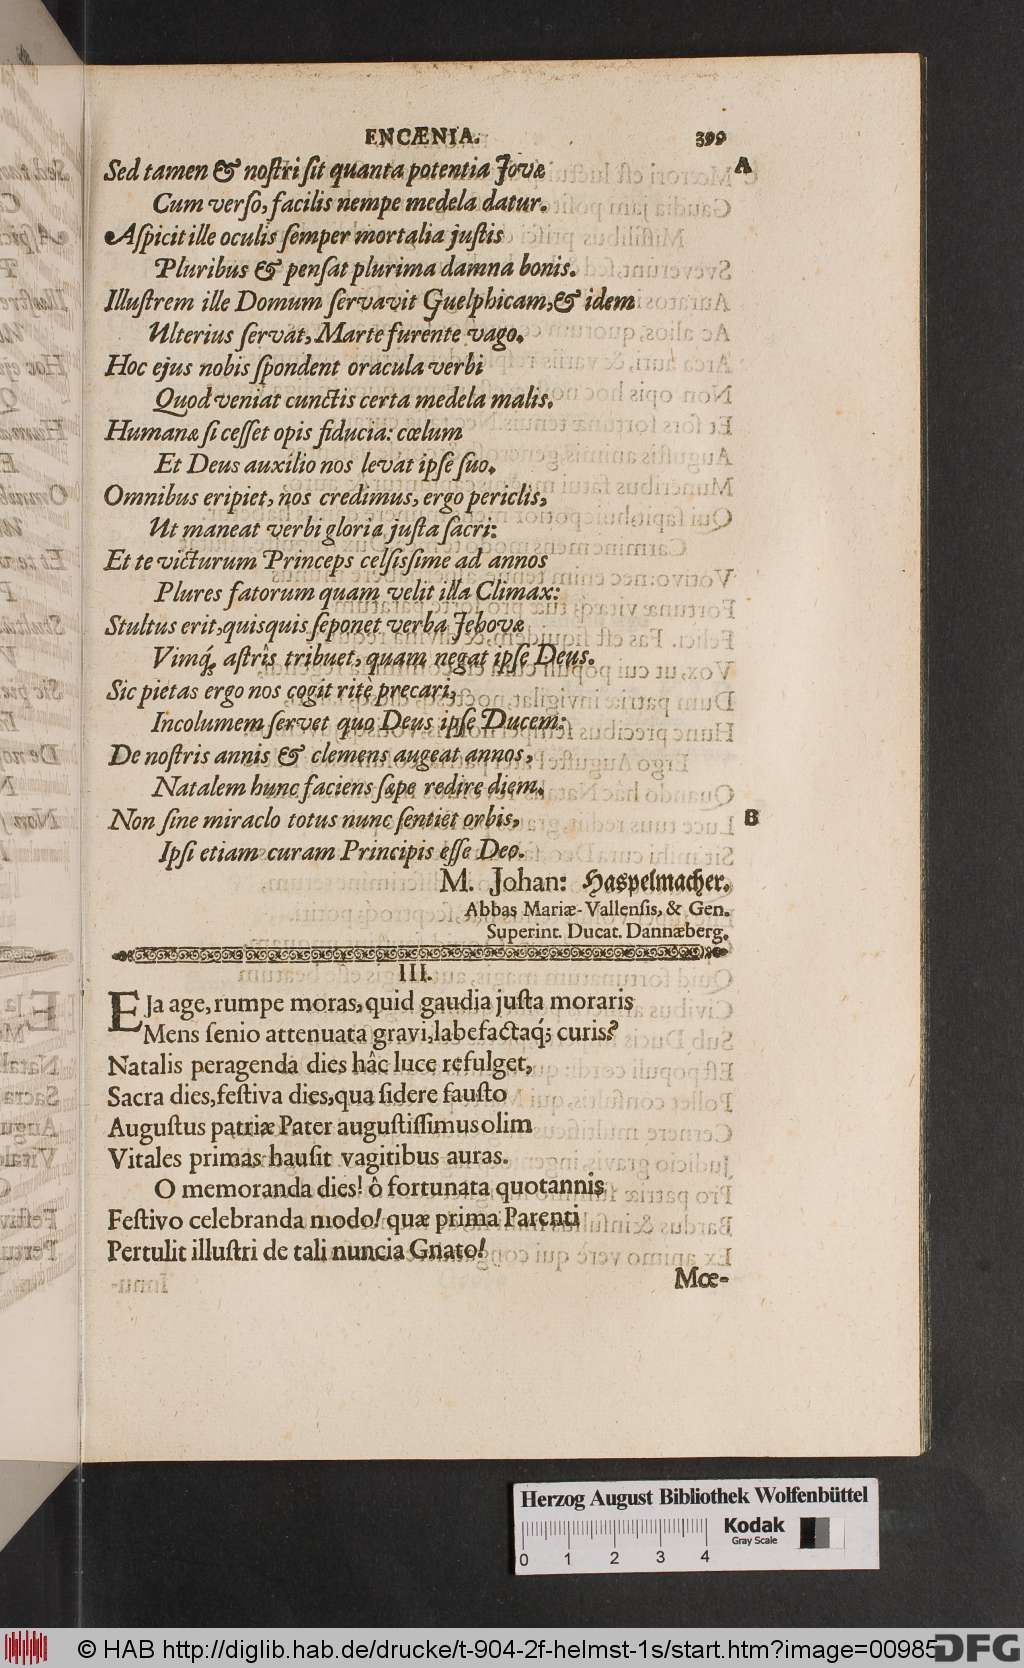 ENCÆNIA.
399
Sed tamen & noſtri ſit quanta potentia Jovæ
A
Cum verſo, facilis nempe medela datur.
Aſpicit ille oculis ſemper mortalia juſtis
Pluribus & penſat plurima damna bonis.
Illuſtrem ille Domum ſervavit Guelphicam, & idem
Ulterius ſervat, Marte furente vago.
Hoc ejus nobis ſpondent oracula verbi
Quod veniat cunctis certa medela malis.
Humanæ ſi ceſſet opis fiducia: cœlum
Et Deus auxilio nos levat ipſe ſuo.
Omnibus eripiet, nos credimus, ergo periclis,
Ut maneat verbi gloria juſta ſacri:
Et te victurum Princeps celſisſime ad annos
Plures fatorum quam velit illa Climax:
Stultus erit, quisquis ſeponet verba Jehovæ
Vimq́; aſtris tribuet, quam negat ipſe Deus.
Sic pietas ergo nos cogit ritè precari,
Incolumem ſervet quo Deus ipſe Ducem:
De noſtris annis & clemens augeat annos,
Natalem hunc faciens ſæpe redire diem.
Non ſine miraclo totus nunc ſentiet orbis,
B
Ipſi etiam curam Principis eſſe Deo.
M. Johan: Haspelmacher.
Abbas Mariæ-Vallenſis, & Gen.
Superint. Ducat. Dannæberg.
III.
EJa age, rumpe moras, quid gaudia juſta moraris
Mens ſenio attenuata gravi, labefactaq́; curis?
Natalis peragenda dies hâc luce refulget,
Sacra dies, feſtiva dies, qua ſidere fauſto
Auguſtus patriæ Pater auguſtiſſimus olim
Vitales primas hauſit vagitibus auras.
O memoranda dies! ô fortunata quotannis
Feſtivo celebranda modo! quæ prima Parenti
Pertulit illuſtri de tali nuncia Gnato!
Mœ-
Herzog August Bibliothek Wolfenbüttel
Kodak
Gray Scale
0 1 2 3 4
© HAB http://diglib.hab.de/drucke/t-904-2f-helmst-1s/start.htm?image=00985
DFG